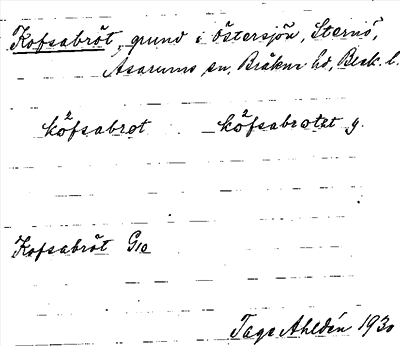 Kofsabröt, grund i Östersjön, Sternö,
Asarums sn, Bräkne hd, Blek. l.
kö̀²fsabrot kö̀²fsabrotet y.
Kofsabröt G10
Tage Ahldén 1930